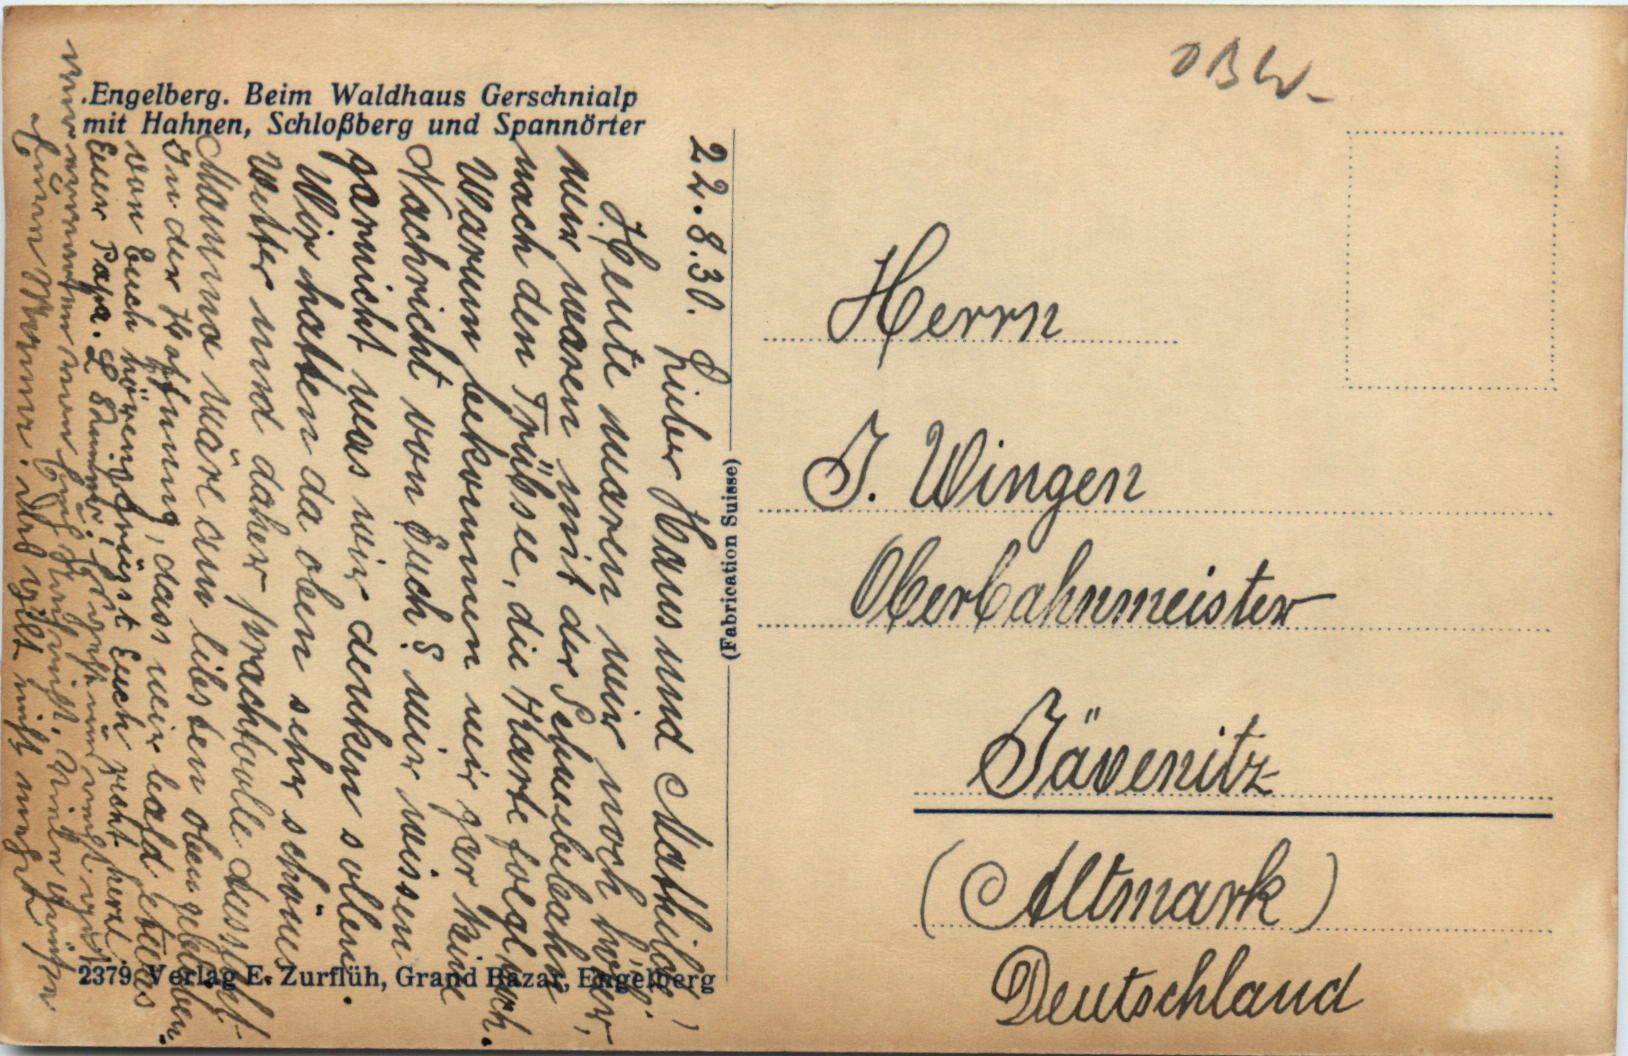 .Engelberg. Beim Waldhaus Gerschnialp
mit Hahnen, Schloßberg und Spannörter
22.8.30.
Lieber Hans und Mathilde!
Heute waren wir noch höher,
wir waren mit der Schwebebahn
nach den Trübsee, die Karte folgt noch.
Warum bekommen wir gar keine
Nachricht von Euch? wir wissen
garnicht was wir denken sollen.
Wir hatten da oben sehr schönes
Wetter und daher prachtvolle Aussicht.
Mamma wäre am liebsten oben geblieben.
In der Hoffnung, dass wir bald etwas
von Euch hören, grüsst Euch recht herzl.
Euer Papa.
2379 Verlag E. Zurflüh, Grand Bazar, Engelberg
(Fabrication Suisse)
OBW-
Herrn
J. Wingen
Oberbahnmeister
Jävenitz
(Altmark)
Deutschland